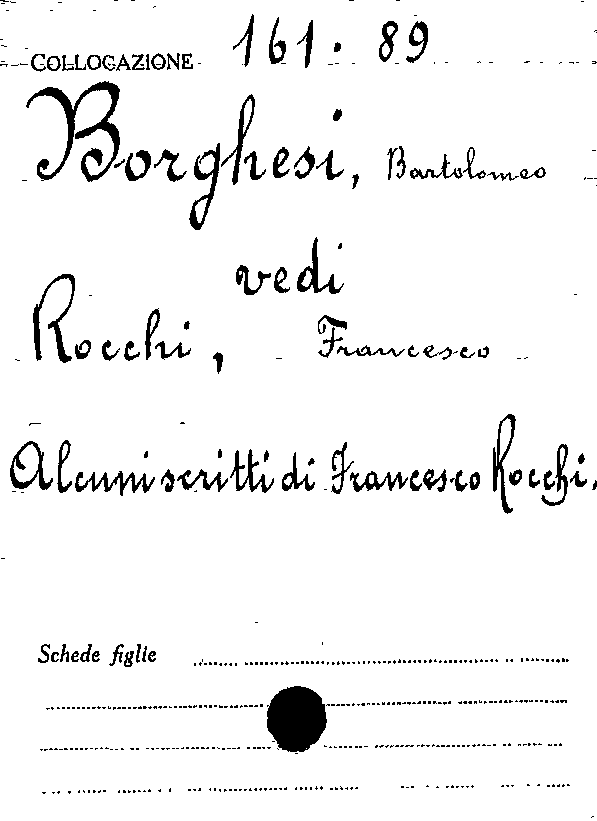 COLLOCAZIONE 161. 89
Borghesi, Bartolomeo
vedi
Rocchi, Francesco
Alcuni scritti di Francesco Rocchi.
Schede figlie